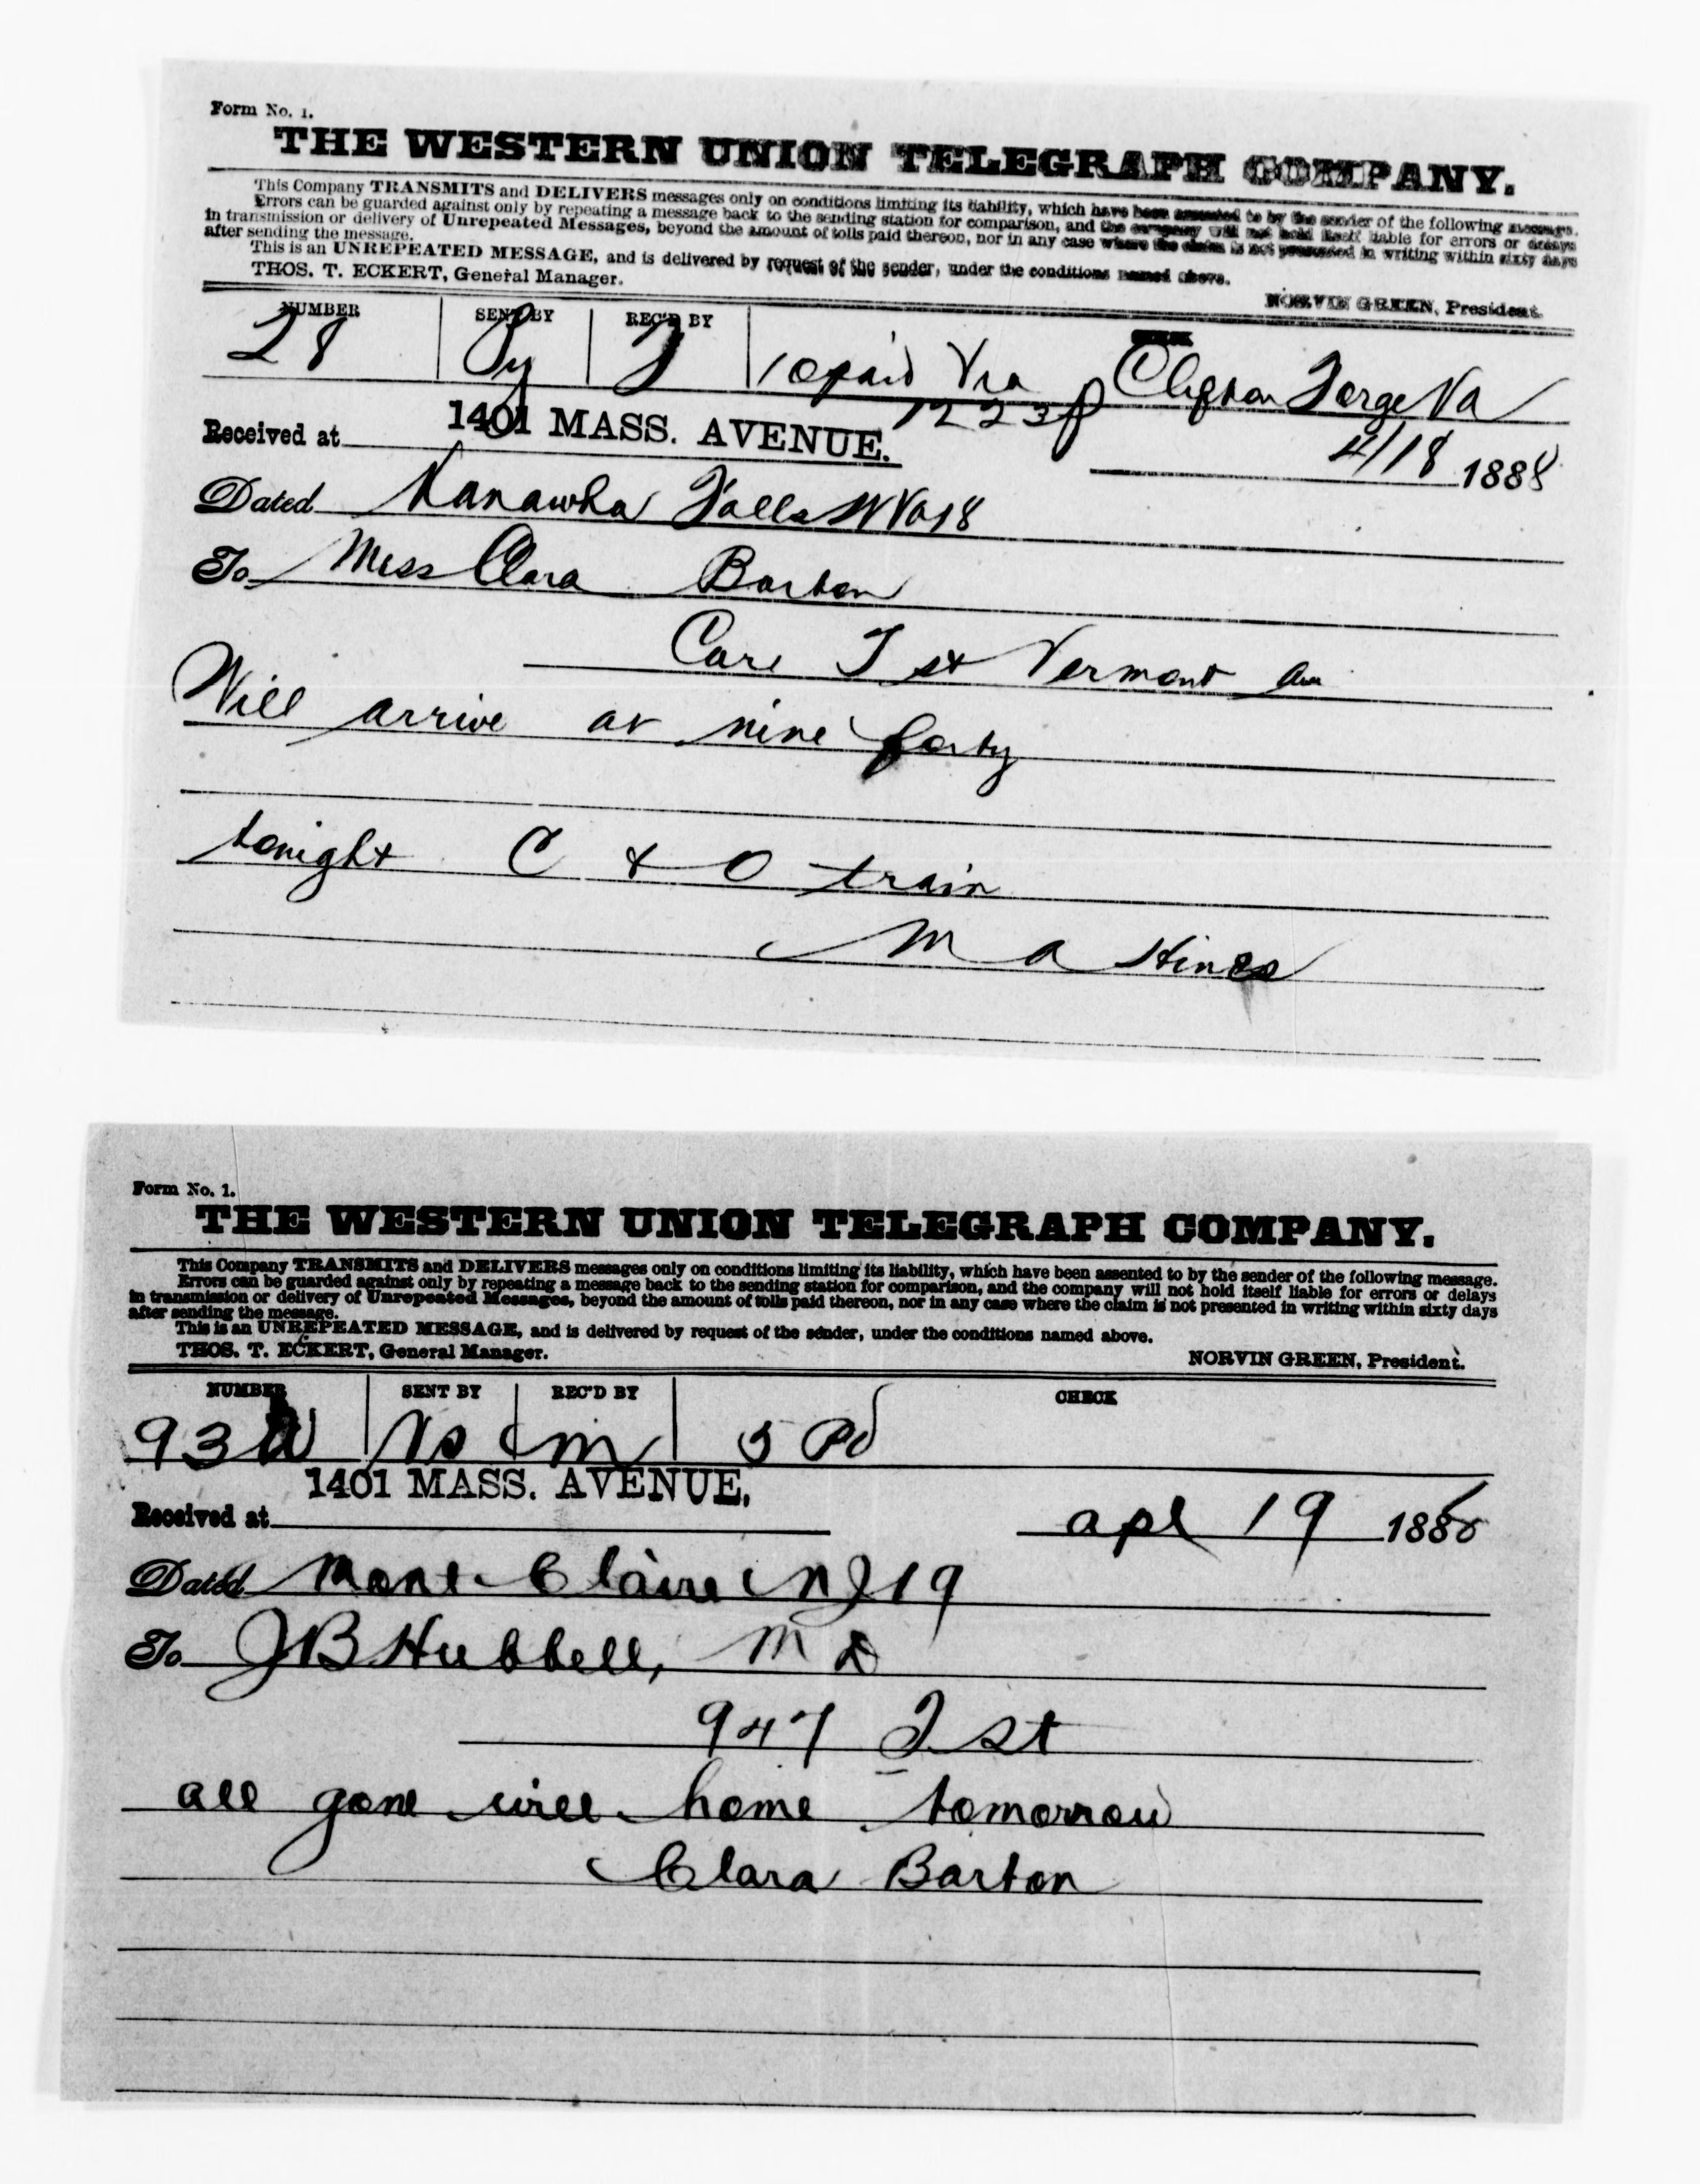 Form No. 1.
THE WESTERN UNION TELEGRAPH COMPANY.
This Company TRANSMITS and DELIVERS messages only on conditions limiting its liability, which have been assented to by the sender of the following message.
Errors can be guarded against only by repeating a message back to the sending station for comparison, and the company will not hold itself liable for errors or delays
in transmission or delivery of Unrepeated Messages, beyond the amount of tolls paid thereon, nor in any case where the claim is not presented in writing within sixty days
after sending the message.
This is an UNREPEATED MESSAGE, and is delivered by request of the sender, under the conditions named above.
THOS. T. ECKERT, General Manager.
NORVIN GREEN, President.
NUMBER SENT BY REC'D BY CHECK
28 Py J 10 paid Via Clifton Forge Va
1223p
Received at 1401 MASS. AVENUE. 4/18 1888
Dated Kanawha Falls W Va 18
To Miss Clara Barton
Care I st Vermont av
Will arrive at nine forty
tonight C & O train
M A Hines
Form No. 1.
THE WESTERN UNION TELEGRAPH COMPANY.
This Company TRANSMITS and DELIVERS messages only on conditions limiting its liability, which have been assented to by the sender of the following message.
Errors can be guarded against only by repeating a message back to the sending station for comparison, and the company will not hold itself liable for errors or delays
in transmission or delivery of Unrepeated Messages, beyond the amount of tolls paid thereon, nor in any case where the claim is not presented in writing within sixty days
after sending the message.
This is an UNREPEATED MESSAGE, and is delivered by request of the sender, under the conditions named above.
THOS. T. ECKERT, General Manager.
NORVIN GREEN, President.
NUMBER SENT BY REC'D BY CHECK
93 m 5 Pd
1401 MASS. AVENUE.
Received at apl 19 1888
Dated Mont Claire NJ 19
To J B Hubbell, M D
947 I st
all gone will home tomorrow
Clara Barton